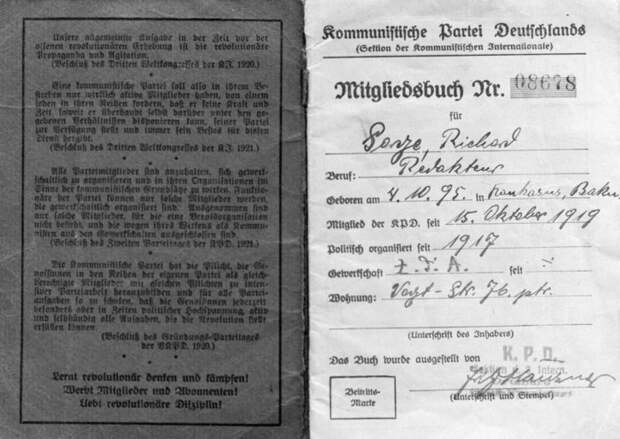 Unsere allgemeinste Aufgabe in der Zeit vor der
offenen revolutionären Erhebung ist die revolutionäre
Propaganda und Agitation.
(Beschluß des Dritten Weltkongresses der KI. 1920.)
Eine kommunistische Partei soll also in idem Be-
streben nur wirklich aktive Mitglieder haben, von einem
jeden in ihren Reihen fordern, daß er seine Kraft und
Zeit, soweit er überhaupt selbst darüber unter den ge-
gebenen Verhältnissen disponieren kann, seiner Partei
zur Verfügung stellt und immer sein Bestes für diesen
Dienst hergibt.
(Beschluß des Dritten Weltkongresses der KI. 1921.)
Alle Parteimitglieder sind anzuhalten, sich gewerk-
schaftlich zu organisieren und in ihren Organisationen im
Sinne der kommunistischen Grundsätze zu wirken. Funktio-
näre der Partei können nur solche Mitglieder werden,
die gewerkschaftlich organisiert sind. Ausgenommen sind
nur solche Mitglieder, für die eine Berufsorganisation
nicht besteht, und die wegen ihres Wirkens als Kommu-
nisten aus den Gewerkschaften ausgeschlossen sind.
(Beschluß des Zweiten Parteitages der KPD. 1921.)
Die Kommunistische Partei hat die Pflicht, die Ge-
nossinnen in den Reihen der eigenen Partei als gleich-
berechtigte Mitglieder mit gleichen Pflichten zu inten-
siver Parteiarbeit heranzubilden und für alle Partei-
aufgaben so zu schulen, daß die Genossinnen jederzeit
besonders aber in Zeiten politischer Hochspannung, aktiv
und selbständig alle Aufgaben, die die Revolution stellt
erfüllen können.
(Beschluß des Gründungs-Parteitages
der VKPD. 1920.)
Lernt revolutionär denken und kämpfen!
Werbt Mitglieder und Abonnenten!
Uebt revolutionäre Disziplin!
Kommunistische Partei Deutschlands
(Sektion der Kommunistischen Internationale)
Mitgliedsbuch Nr. 08678
für
Sorge, Richard
Beruf: Redakteur
Geboren am 4. 10. 95. in Kaukasus, Baku
Mitglied der K.P.D. seit 15. Oktober 1919
Politisch organisiert seit 1917
Gewerkschaft Z. d. A. seit
Wohnung: Str. 76. ptr.
(Unterschrift des Inhabers)
Das Buch wurde ausgestellt von K. P. D.
Intern.
Beitritts-
Marke
(Unterschrift und Stempel)